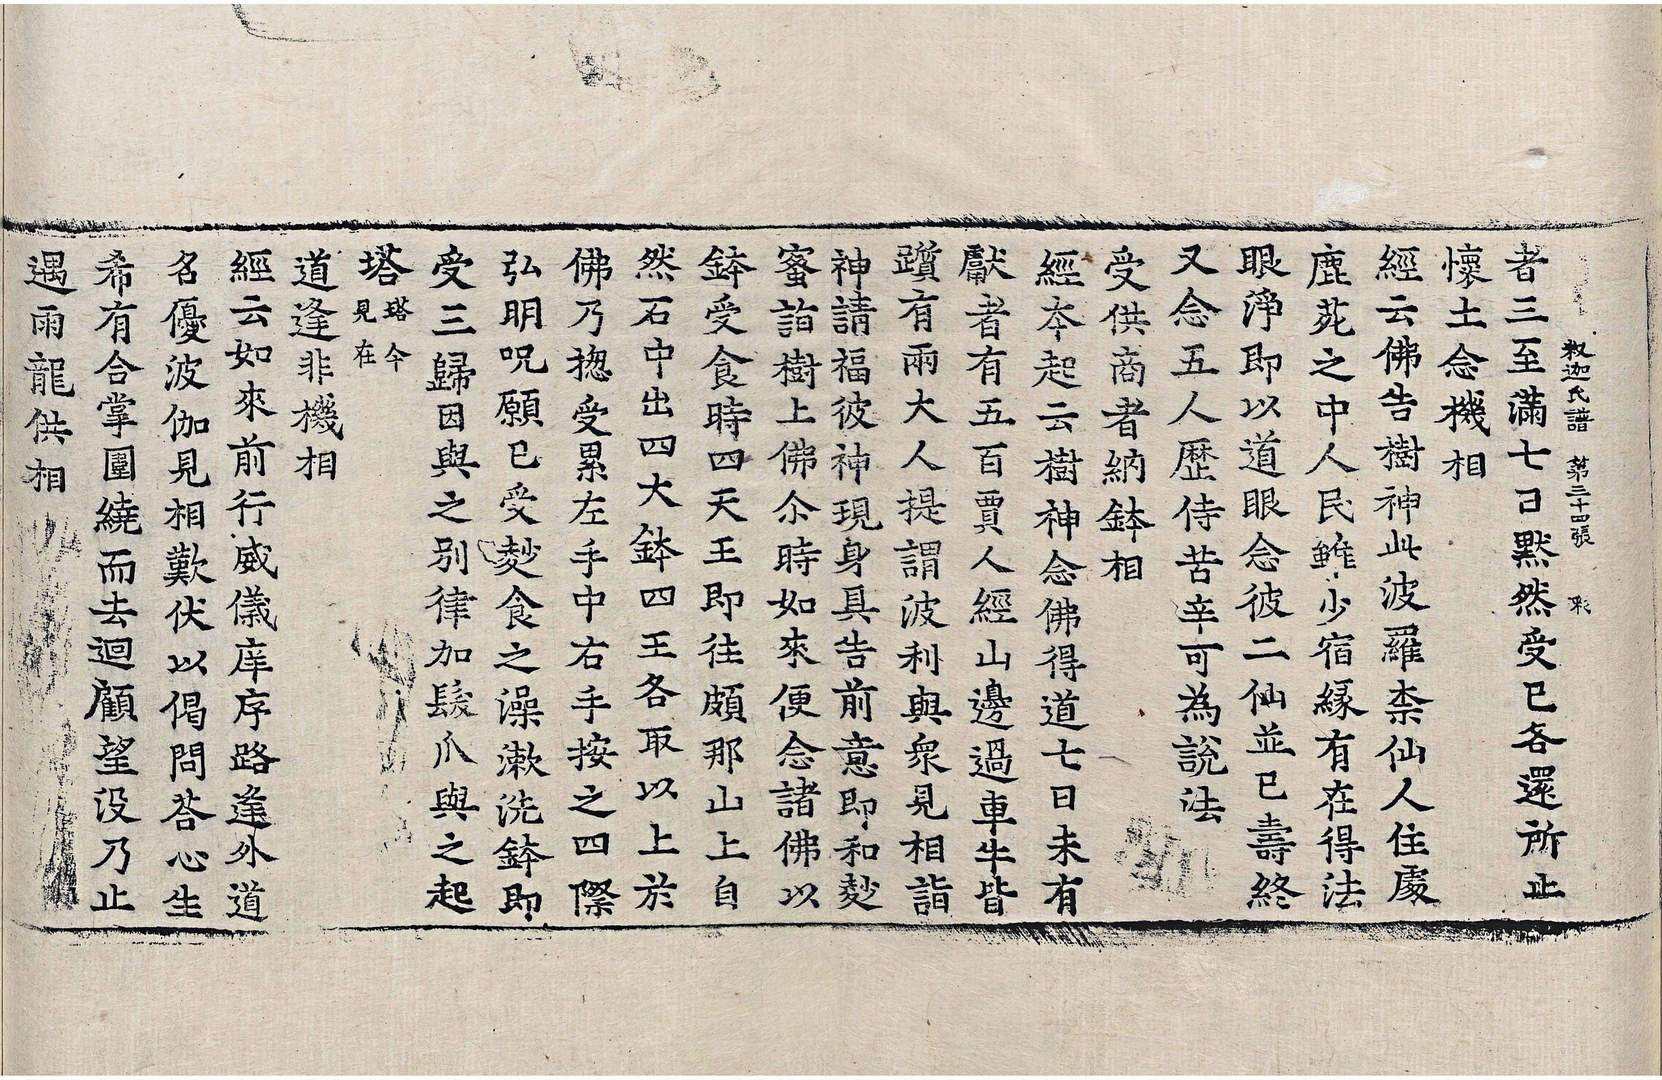 釋迦氏譜 第三十四張 彩
者三至滿七日默然受已各還所止
懷土念機相
經云佛告樹神此波羅柰仙人住處
鹿菀之中人民雖少宿緣有在得法
眼淨即以道眼念彼二仙並已壽終
又念五人歷侍苦辛可為說法
受供商者納鉢相
經夲起云樹神念佛得道七日未有
獻者有五百賈人經山邊過車牛皆
躓有兩大人提謂波利與衆見相詣
神請福彼神現身具告前意即和麨
蜜詣樹上佛尒時如來便念諸佛以
鉢受食時四天王即往頗那山上自
然石中出四大鉢四王各取以上於
佛乃揔受累左手中右手按之四際
弘明呪願已受麨食之澡漱洗鉢即
受三歸因與之別律加髮爪與之起
塔塔今見在
道逢非機相
經云如來前行威儀庠序路逢外道
名優波伽見相歎伏以偈問荅心生
希有合掌圍繞而去迴顧望沒乃止
遇雨龍供相